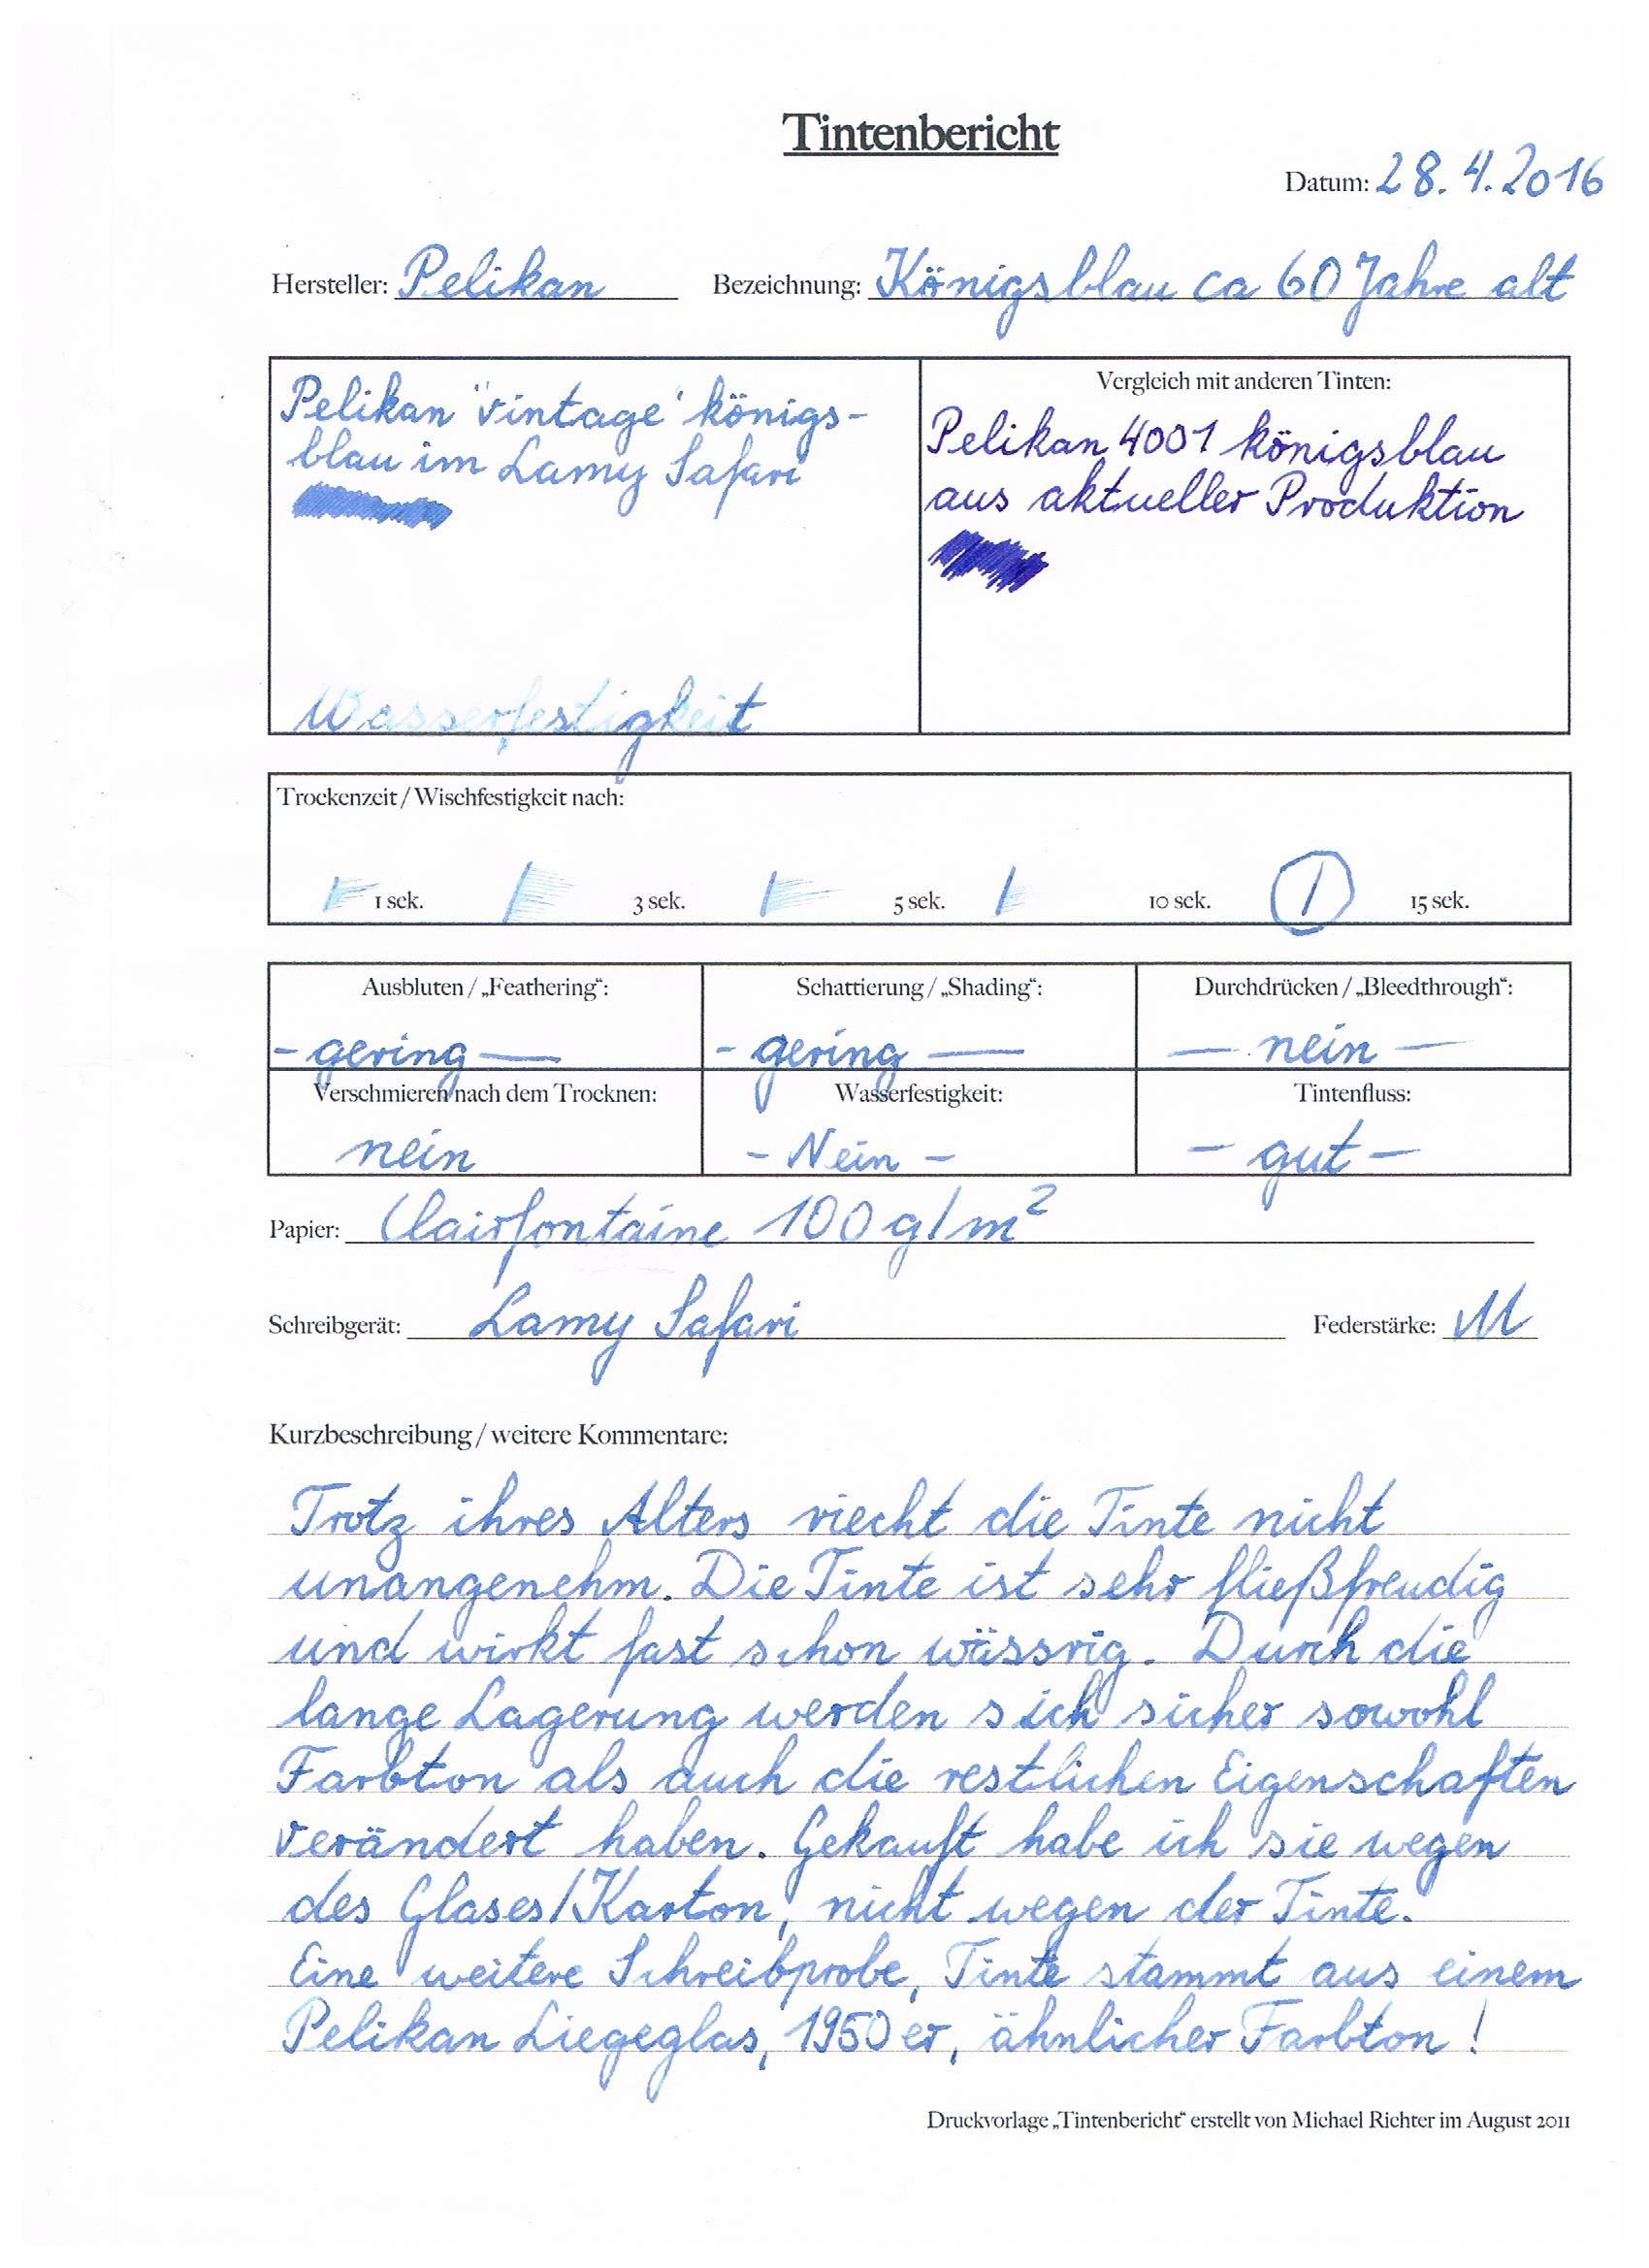 Tintenbericht
Datum: 28.4.2016
Hersteller: Pelikan Bezeichnung: Königsblau ca 60 Jahre alt
Pelikan "vintage" königs-
blau im Lamy Safari
Wasserfestigkeit
Vergleich mit anderen Tinten:
Pelikan 4001 königsblau
aus aktueller Produktion
Trockenzeit / Wischfestigkeit nach:
1 sek. 3 sek. 5 sek. 10 sek. 15 sek.
Ausbluten / „Feathering“: Schattierung / „Shading“: Durchdrücken / „Bleedthrough“:
- gering — - gering — — nein —
Verschmieren nach dem Trocknen: Wasserfestigkeit: Tintenfluss:
nein - Nein - - gut -
Papier: Clairfontaine 100 g/m²
Schreibgerät: Lamy Safari Federstärke: M
Kurzbeschreibung / weitere Kommentare:
Trotz ihres Alters riecht die Tinte nicht
unangenehm. Die Tinte ist sehr fließfreudig
und wirkt fast schon wässrig. Durch die
lange Lagerung werden sich sicher sowohl
Farbton als auch die restlichen Eigenschaften
verändert haben. Gekauft habe ich sie wegen
des Glases/Karton, nicht wegen der Tinte.
Eine weitere Schreibprobe, Tinte stammt aus einem
Pelikan Liegeglas, 1950er, ähnlicher Farbton!
Druckvorlage „Tintenbericht“ erstellt von Michael Richter im August 2011